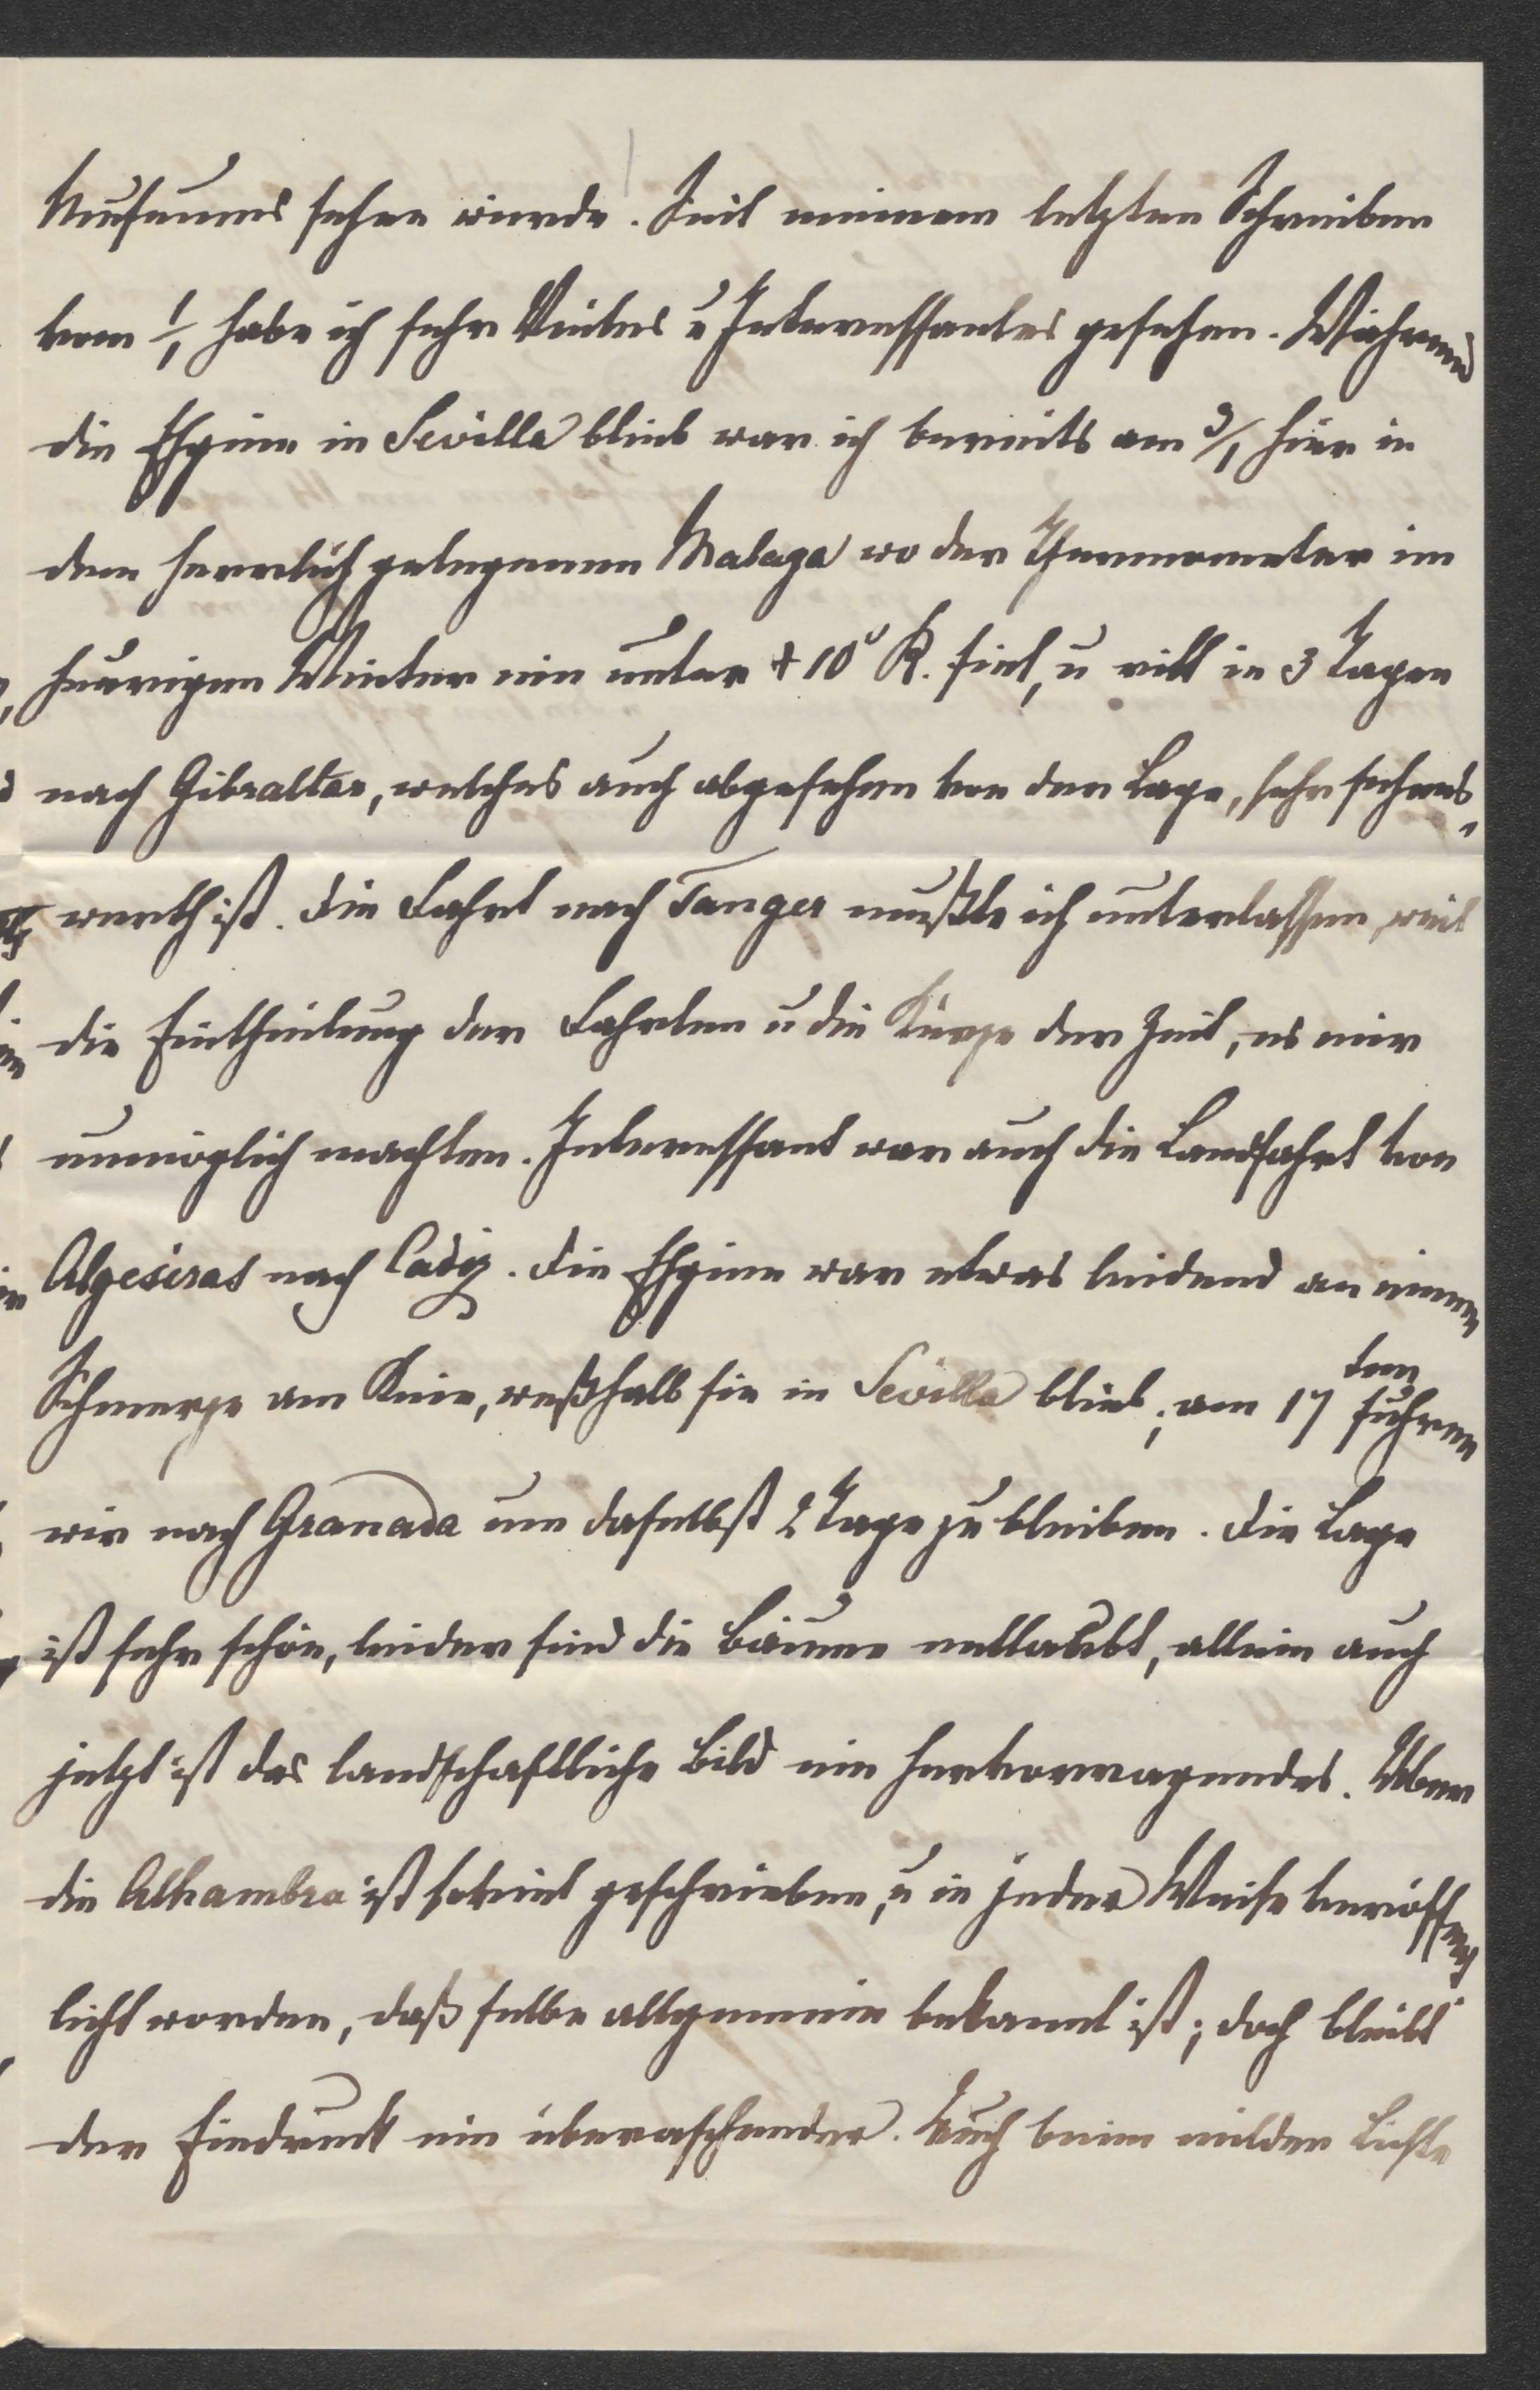 Museums sehen würde. Seit meinem letzten Schreiben
vom 1/1 habe ich sehr Vieles u Interessantes gesehen. Während
die Ehgine in Sevilla blieb war ich bereits am 3/1 hier in
dem herrlich gelegenen Malaga wo der Thermometer im
heurigen Winter nie unter + 10° R. fiel, u ritt in 3 Tagen
nach Gibraltar, welches auch abgesehen von der Lage, sehr sehens„
werth ist. Die Fahrt nach Tanger mußte ich unterlassen, weil
die Eintheilung der Fahrten u die Kürze der Zeit, es mir
unmöglich machten. Interessant war auch die Landfahrt von
Algesiras nach Cadiz. Die Ehgine war etwas leidend an einem
Schmerze am Knie, weßhalb sie in Sevilla blieb; am 17 ten fuhren
wir nach Granada um daselbst 2 Tage zu bleiben. Die Lage
ist sehr schön, leider sind die Bäume entlaubt, allein auch
jetzt ist das landschaftliche Bild ein hervorragendes. Über
die Alhambra ist soviel geschrieben, u in jeder Weise veröffent
licht worden, daß selbe allgemein bekannt ist; doch bleibt
der Eindruck ein überaschender. Auch beim milden Lichte